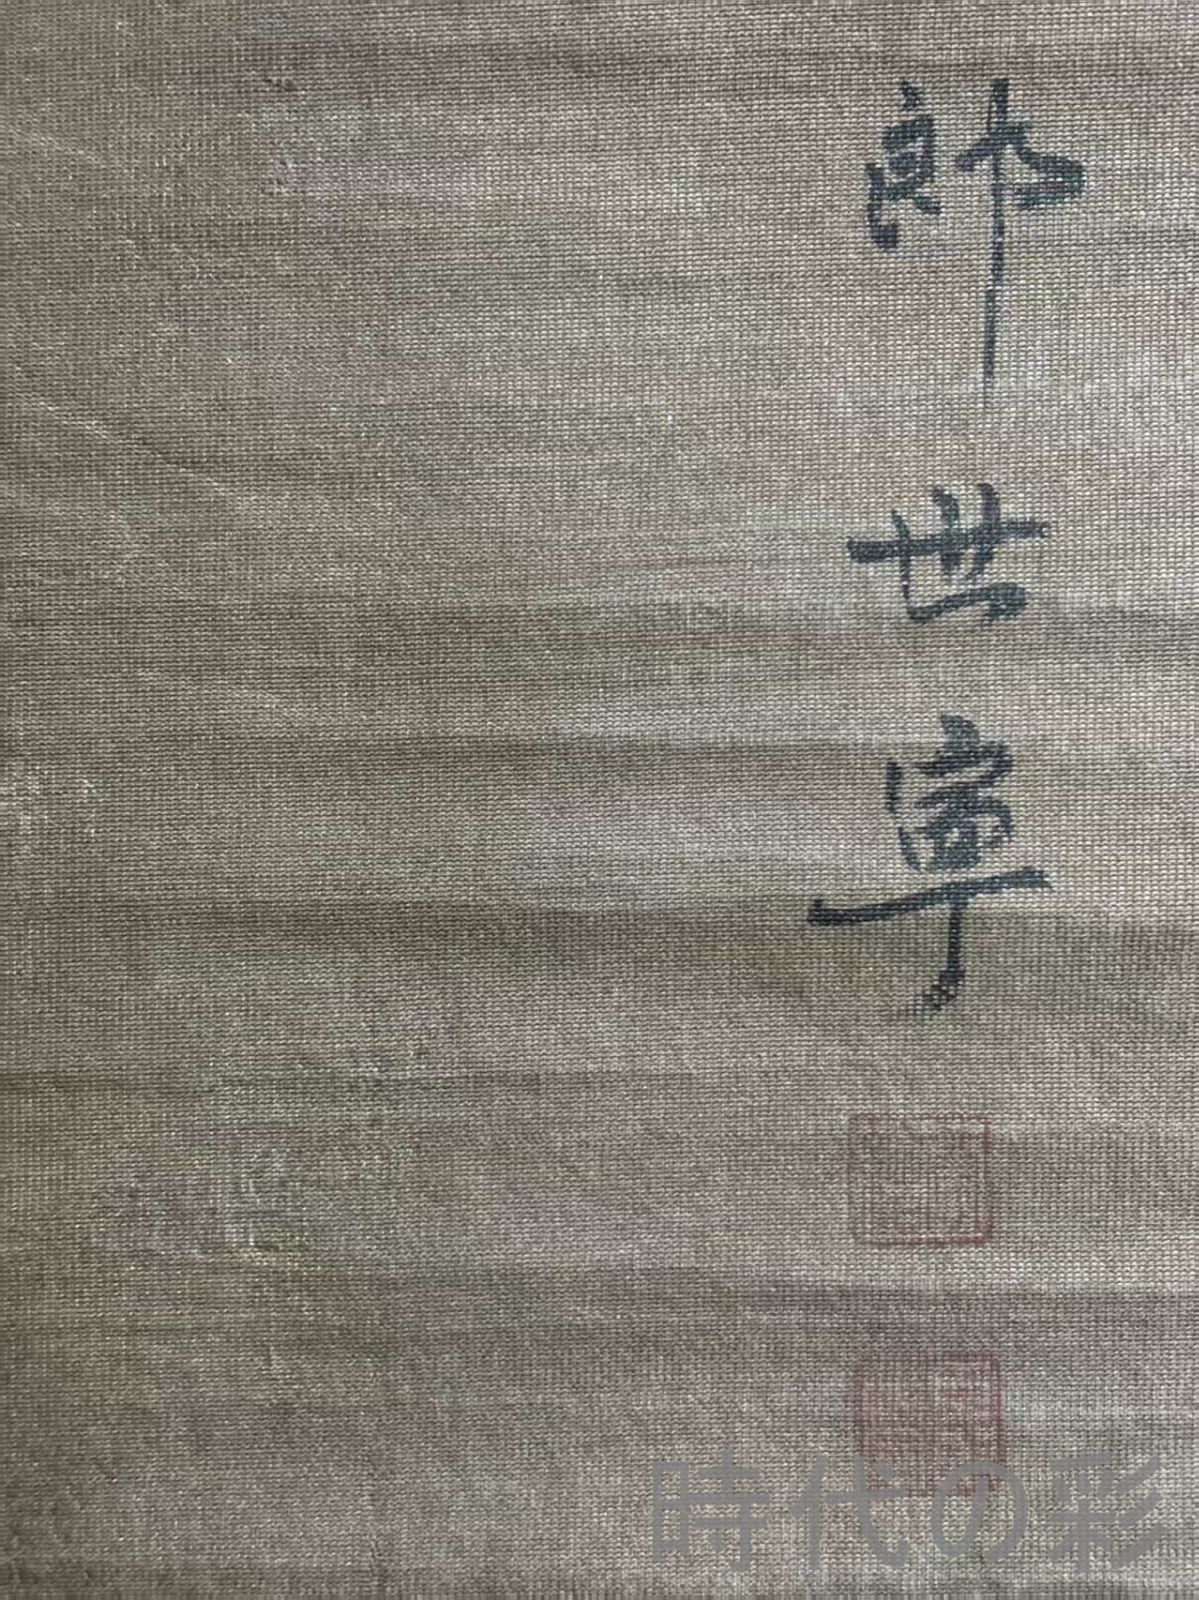 郎世寧
時代の彩